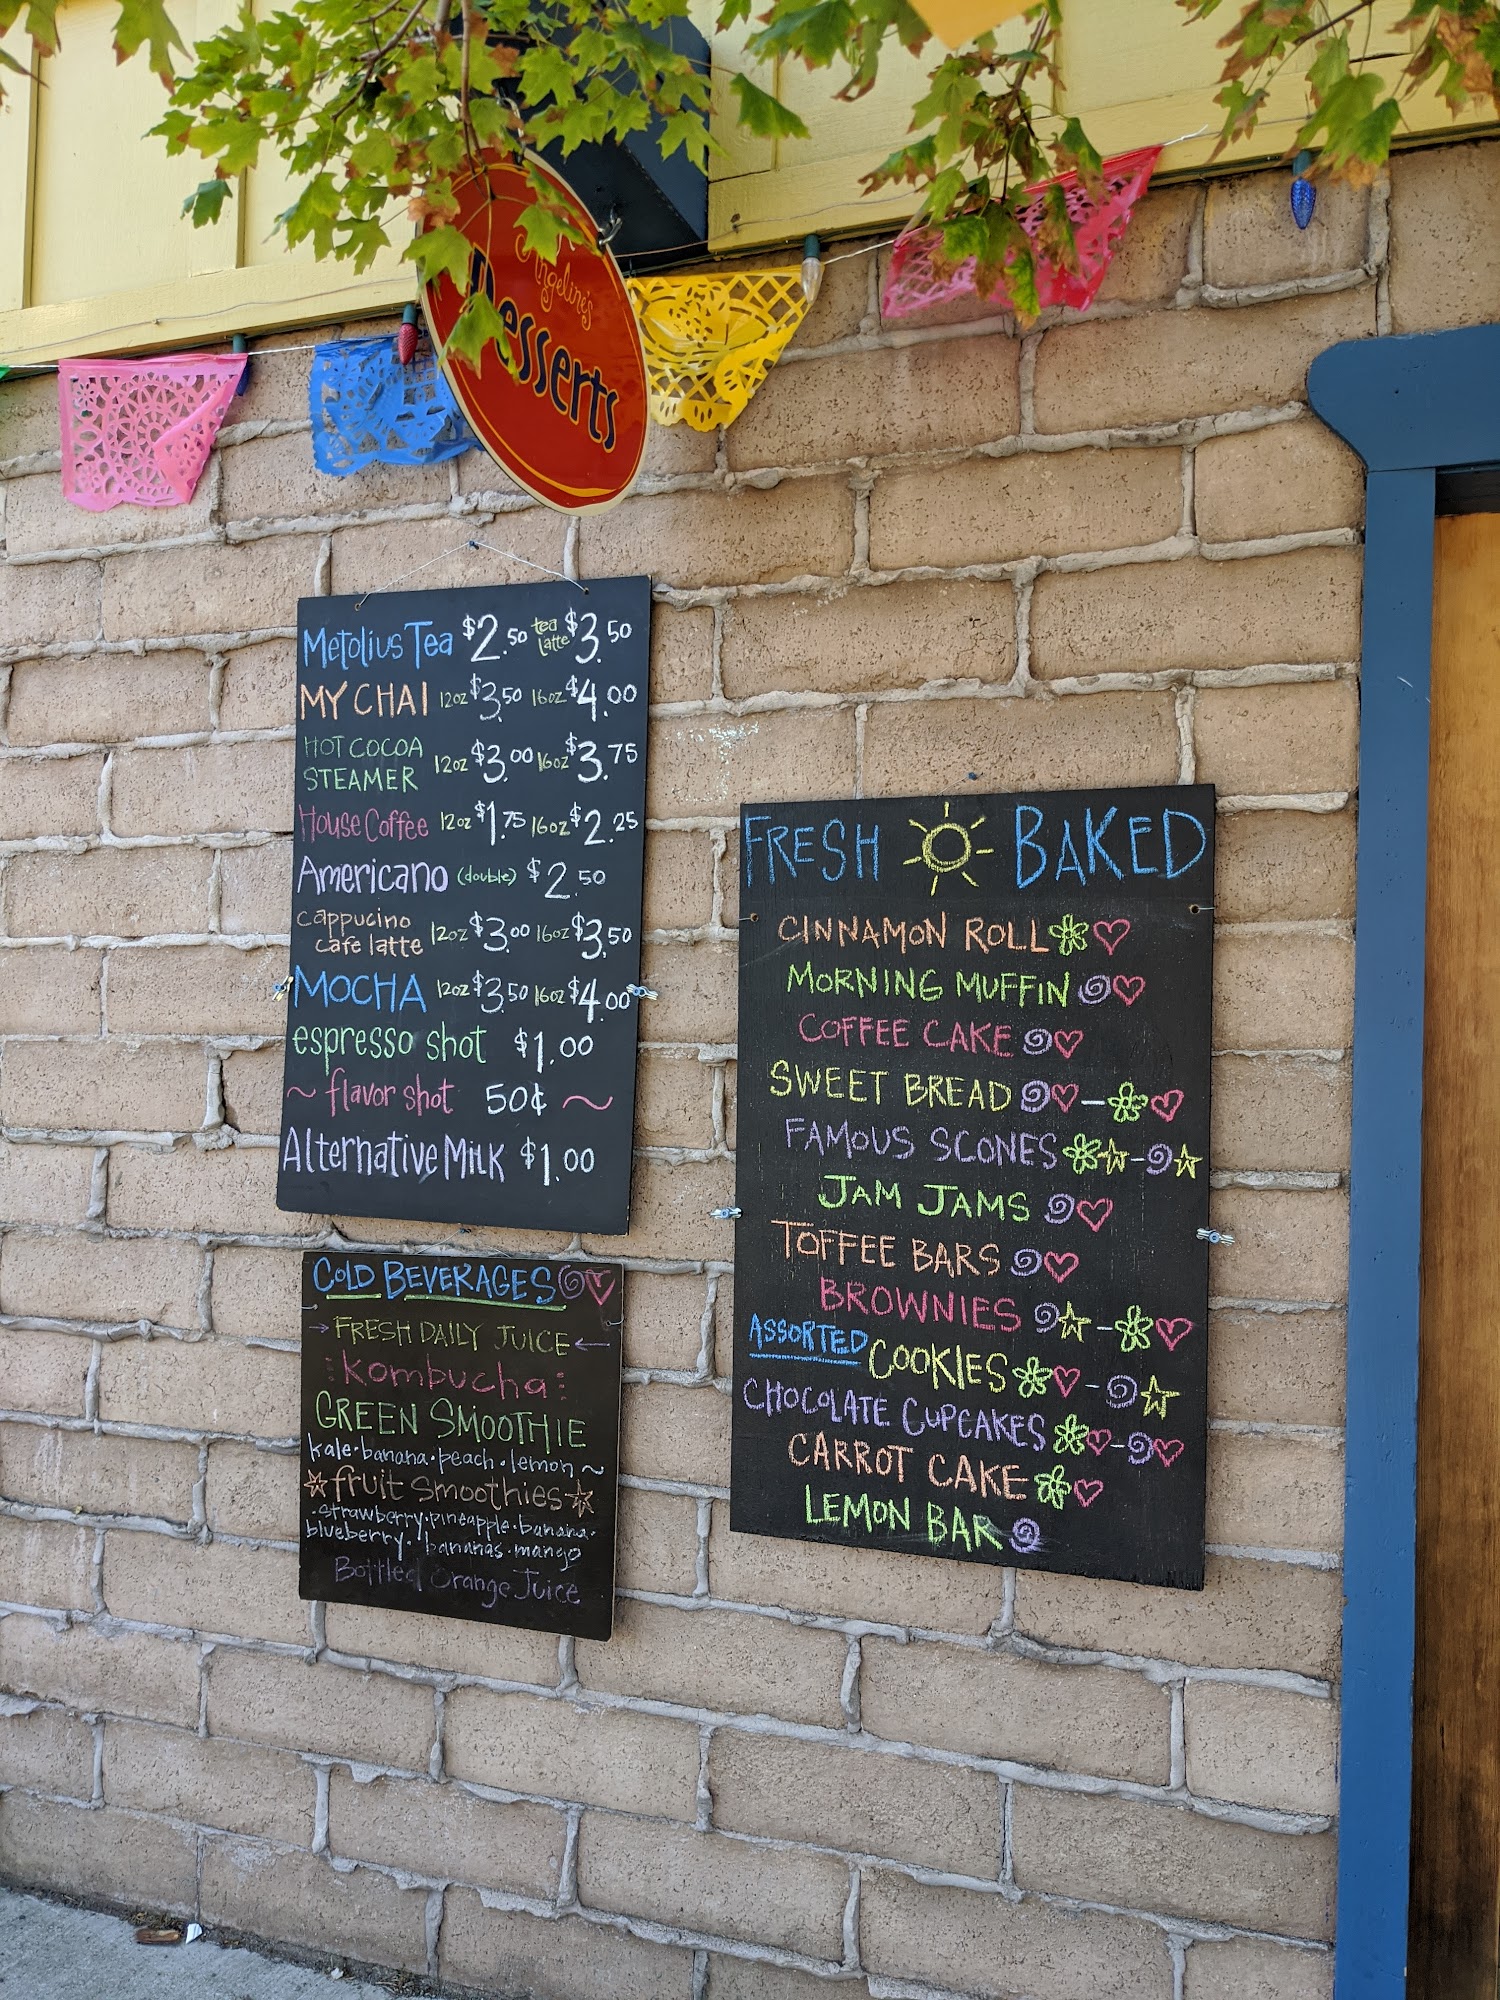 Angeline's
Desserts
Metolius Tea $2.50 tea latte $3.50
MY CHAI 12oz $3.50 16oz $4.00
HOT COCOA
STEAMER 12oz $3.00 16oz $3.75
House Coffee 12oz $1.75 16oz $2.25
Americano (double) $2.50
cappucino
cafe latte 12oz $3.00 16oz $3.50
MOCHA 12oz $3.50 16oz $4.00
espresso shot $1.00
~ flavor shot 50¢ ~
Alternative Milk $1.00
COLD BEVERAGES
→ FRESH DAILY JUICE ←
kombucha
GREEN SMOOTHIE
kale · banana · peach · lemon ~
fruit smoothies
· strawberry · pineapple · banana ·
blueberry · bananas · mango
Bottled Orange Juice
FRESH BAKED
CINNAMON ROLL
MORNING MUFFIN
COFFEE CAKE
SWEET BREAD
FAMOUS SCONES
JAM JAMS
TOFFEE BARS
BROWNIES
ASSORTED COOKIES
CHOCOLATE CUPCAKES
CARROT CAKE
LEMON BAR